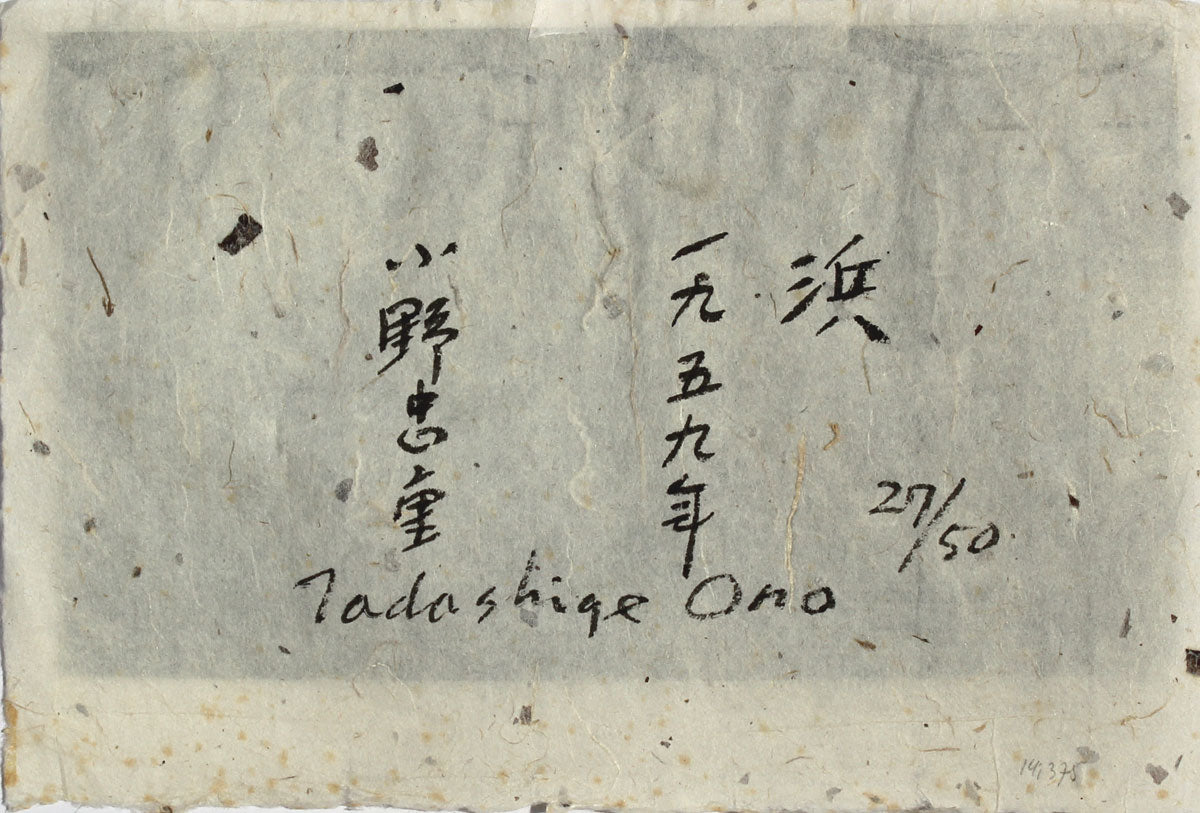 浜
一九五九年
小野忠重
27/50
Tadashige Ono
141375